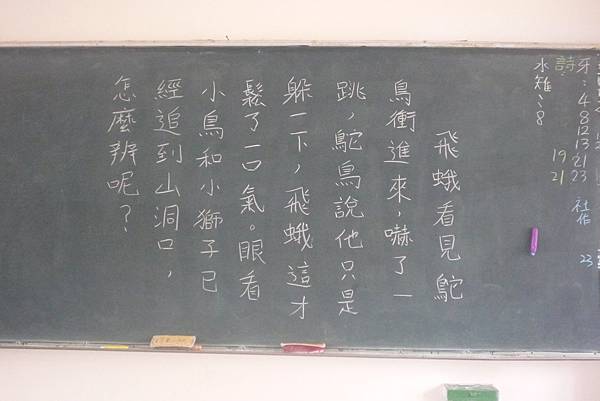 牙:4 8 12 13 21 23
社作 23
詩: 19 21
水雉:8
飛蛾看見鴕
鳥衝進來,嚇了一
跳,鴕鳥說他只是
躲一下,飛蛾這才
鬆了一口氣。眼看
小鳥和小獅子已
經追到山洞口,
怎麼辨呢?